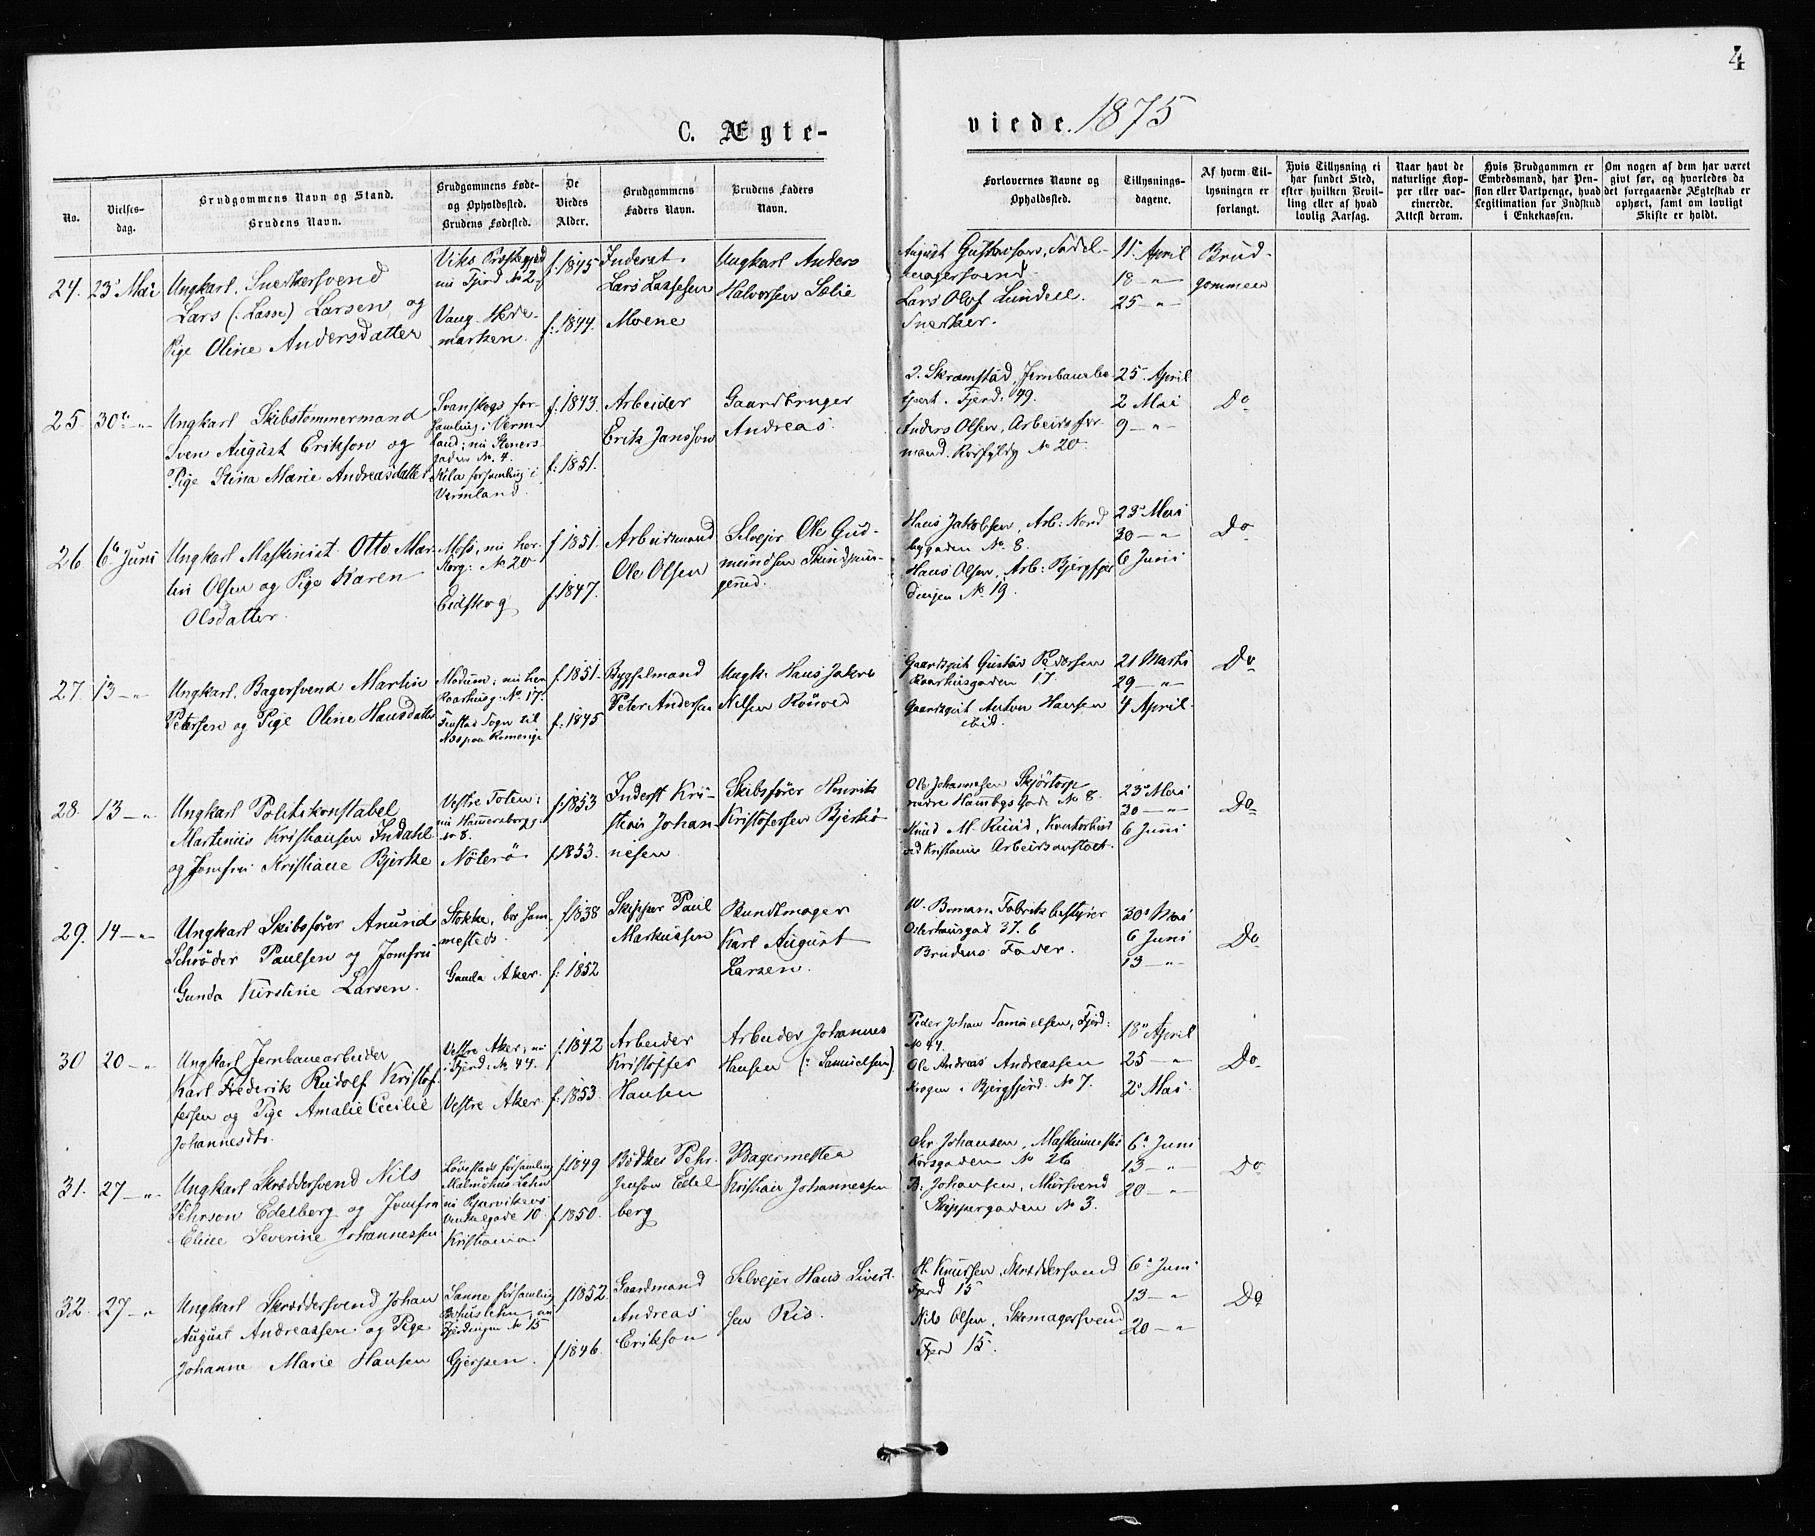 4
C. Ægte-
viede. 1875
No.
Vielses-
dag.
Brudgommens Navn og Stand.
Brudens Navn.
Brudgommens Føde-
og Opholdssted.
Brudens Fødested.
De
Viedes
Alder.
Brudgommens
Faders Navn.
Brudens Faders
Navn.
Forlovernes Navne og
Opholdssted.
Tillysnings-
dagene.
Af hvem Til-
lysningen er
forlangt.
Hvis Tillysning ei
har fundet Sted,
efter hvilken Bevil-
ling eller af hvad
lovlig Aarsag.
Naar havt de
naturlige Kop-
per eller vac-
cinerede.
Attest derom.
Hvis Brudgommen er
Embedsmand, har Pen-
sion eller Vartpenge, hvad
Legitimation for Indskud
i Enkekassen.
Om nogen af dem har været
givt før, og hvorledes da
det foregaaende Ægteskab er
ophørt, samt om lovligt
Skifte er holdt.
24. 23de Mai
Ungkarl. Snerkersvend
Lars (: Lasse) Larsen, og
Pige Oline Andersdatter
Viks Præstegjed
nu Fjerd No 2
Vang. Hede-
marken.
f. 1845
f. 1844.
Inderst.
Lars Lassesen
Moene
Ungkarl Anders
Halvorsen Sælie
August Gustavson, Sadel-
magersvend
Lars Olof Lundell.
Snerker.
11te April
18 – "
25 – "
Brud-
gommen
25. 30te "
Ungkarl Skibstømmermand
Sven August Erikson og
Pige Stina Marie Andreasdatter
Svanskogs for-
samling i Verm-
land; nu Steners-
gaden No. 4.
Kila forsamling i
Vermland.
f. 1843.
f. 1851.
Arbeider
Erik Jansson
Gaardbruger
Andreas
Skramstad, Jernbanebe-
tjent. Fjerd. 49.
Anders Olsen, Arbeidsfor-
mand. No 20
25. April
2 Mai
9 – "
Do
26 6te Juni
Ungkarl Maskinist Otto Mar-
tin Olsen og Pige Karen
Olsdatter.
Moss, nu her
No 20
Eidskog
f 1851.
f. 1847.
Arbeidsmand
Ole Olsen
Selveier Ole Gud-
mundsen
Hans Jakobsen, Arb. Nord-
bygaden No. 8.
Hans Olsen, Arb: Bjergfjer-
dingen No. 19.
23de Mai
30 – "
6 Juni
Do
27. 13 – "
Ungkarl. Bagersvend Martin
Petersen og Pige Oline Hansdatter
Modum; nu her
Raarhusg. No. 17.
Fenstad Sogn til
Næs paa Romerige
f. 1851.
f. 1845
Bygselmand
Peter Andersen
Ungk. Hans Jakob
Nilsen
Gaardgut Gustav Pedersen
Raarhusgaden 17
Gaardsgut Anton Hansen
ibid.
21 Marts
29 – "
4 April.
Do
28. 13 – "
Ungkarl Politikonstabel
Martinius Kristiansen Indahl
og Jomfru Kristiane Bjerke
Vestre Toten;
nu Hammersborgg.
No 8.
Nøterø
f. 1853
f. 1853.
Inderst Kri-
stian Johan-
nesen
Skibsfører Henrik
Kristofersen Bjerkø
Ole Johannesen Skjørtorp
nedre Hambgs Gade No 8.
Knud M. Ruud, Kontorbud
ved Kristiania Arbeidsanstalt.
23de Mai
30 – "
6 Juni
Do
29. 14 – "
Ungkarl Skibsfører Anund
Schrøder Paulsen og Jomfru
Gunda Kirstine Larsen.
Stokke, bor sam-
mesteds.
Gamle Aker.
f 1838
f. 1852
Skipper Paul
Markussen
Bundtmager
Karl August
Larsen.
W. Boman. Fabrikbestyrer
Osterhausgad 37. 6
Brudens Fader.
30te Mai
6 Juni
13 – "
Do
30 20 – "
Ungkarl Jernbanearbeider
Karl Frederik Rudolf Kristof-
fersen og Pige Amalie Cecilie
Johannesdtr.
Vestre Aker, nu
i Fjerd: No 44.
Vestre Aker
f. 1842
f. 1853.
Arbeider
Kristoffer
Hansen
Arbeider Johannes
Hansen (: Samuelsen)
Peder Johan Samuelsen, Fjerd:
No 44.
Ole Andreas Andreassen
Krogen i Bjergfjerd. No 7.
18de April
25 – "
2de Mai.
Do
31. 27 – "
Ungkarl Skræddersvend Nils
Pehrson Edelberg og Jomfru
Eline Severine Johannessen
Løvestads forsamling
Malmöhus Lehn
nu Pipervikens
Vinkelgade 10.
Kristiania
f. 1849
f. 1850.
Bødker Pehr
Jenson Edel-
berg
Bagermester
Kristian Johannessen
Johansen, Maskinmester
Korsgaden No 26
B. Johansen, Mursvend
Skippergaden No 3.
6te Juni
13 – "
20 – "
Do
32. 27 – "
Ungkarl Skræddersvend Johan
August Andreassen og Pige
Johanne Marie Hansen
Sanne forsamling
Bohuslehn, nu
Fjerdingen No 15
Gjerpen.
f 1852.
f 1846.
Gaardmand
Andreas
Erikson
Selveier Hans Sivert-
sen Ris.
H. Knutsen, Skræddersvend
Fjerd 15
Nils Olsen, Skomagersvend
Fjerd 15.
6te Juni
13 – "
20 – "
Do